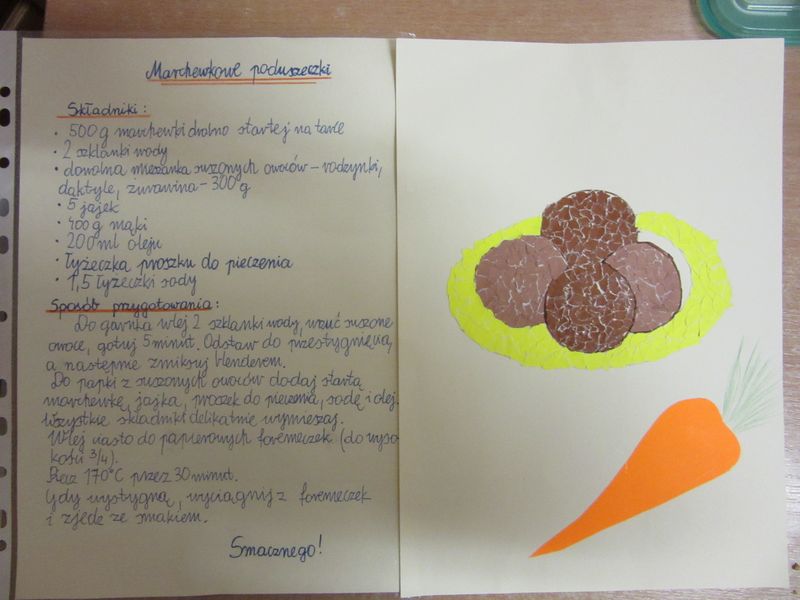 Marchewkowe poduszeczki
Składniki:
• 500 g marchewki drobno startej na tarce
• 2 szklanki wody
• dowolna mieszanka suszonych owoców – rodzynki,
daktyle, żurawina – 300 g
• 5 jajek
• 400 g mąki
• 200 ml oleju
• łyżeczka proszku do pieczenia
• 1,5 łyżeczki sody
Sposób przygotowania:
Do garnka wlej 2 szklanki wody, wrzuć suszone
owoce, gotuj 5 minut. Odstaw do przestygnięcia,
a następnie zmiksuj blenderem.
Do papki z suszonych owoców dodaj startą
marchewkę, jajka, proszek do pieczenia, sodę i olej.
Wszystkie składniki delikatnie wymieszaj.
Wlej ciasto do papierowych foremeczek (do wyso-
kości 3/4).
Piecz 170°C przez 30 minut.
Gdy wystygną, wyciągnij z foremeczek
i zjedz ze smakiem.
Smacznego!